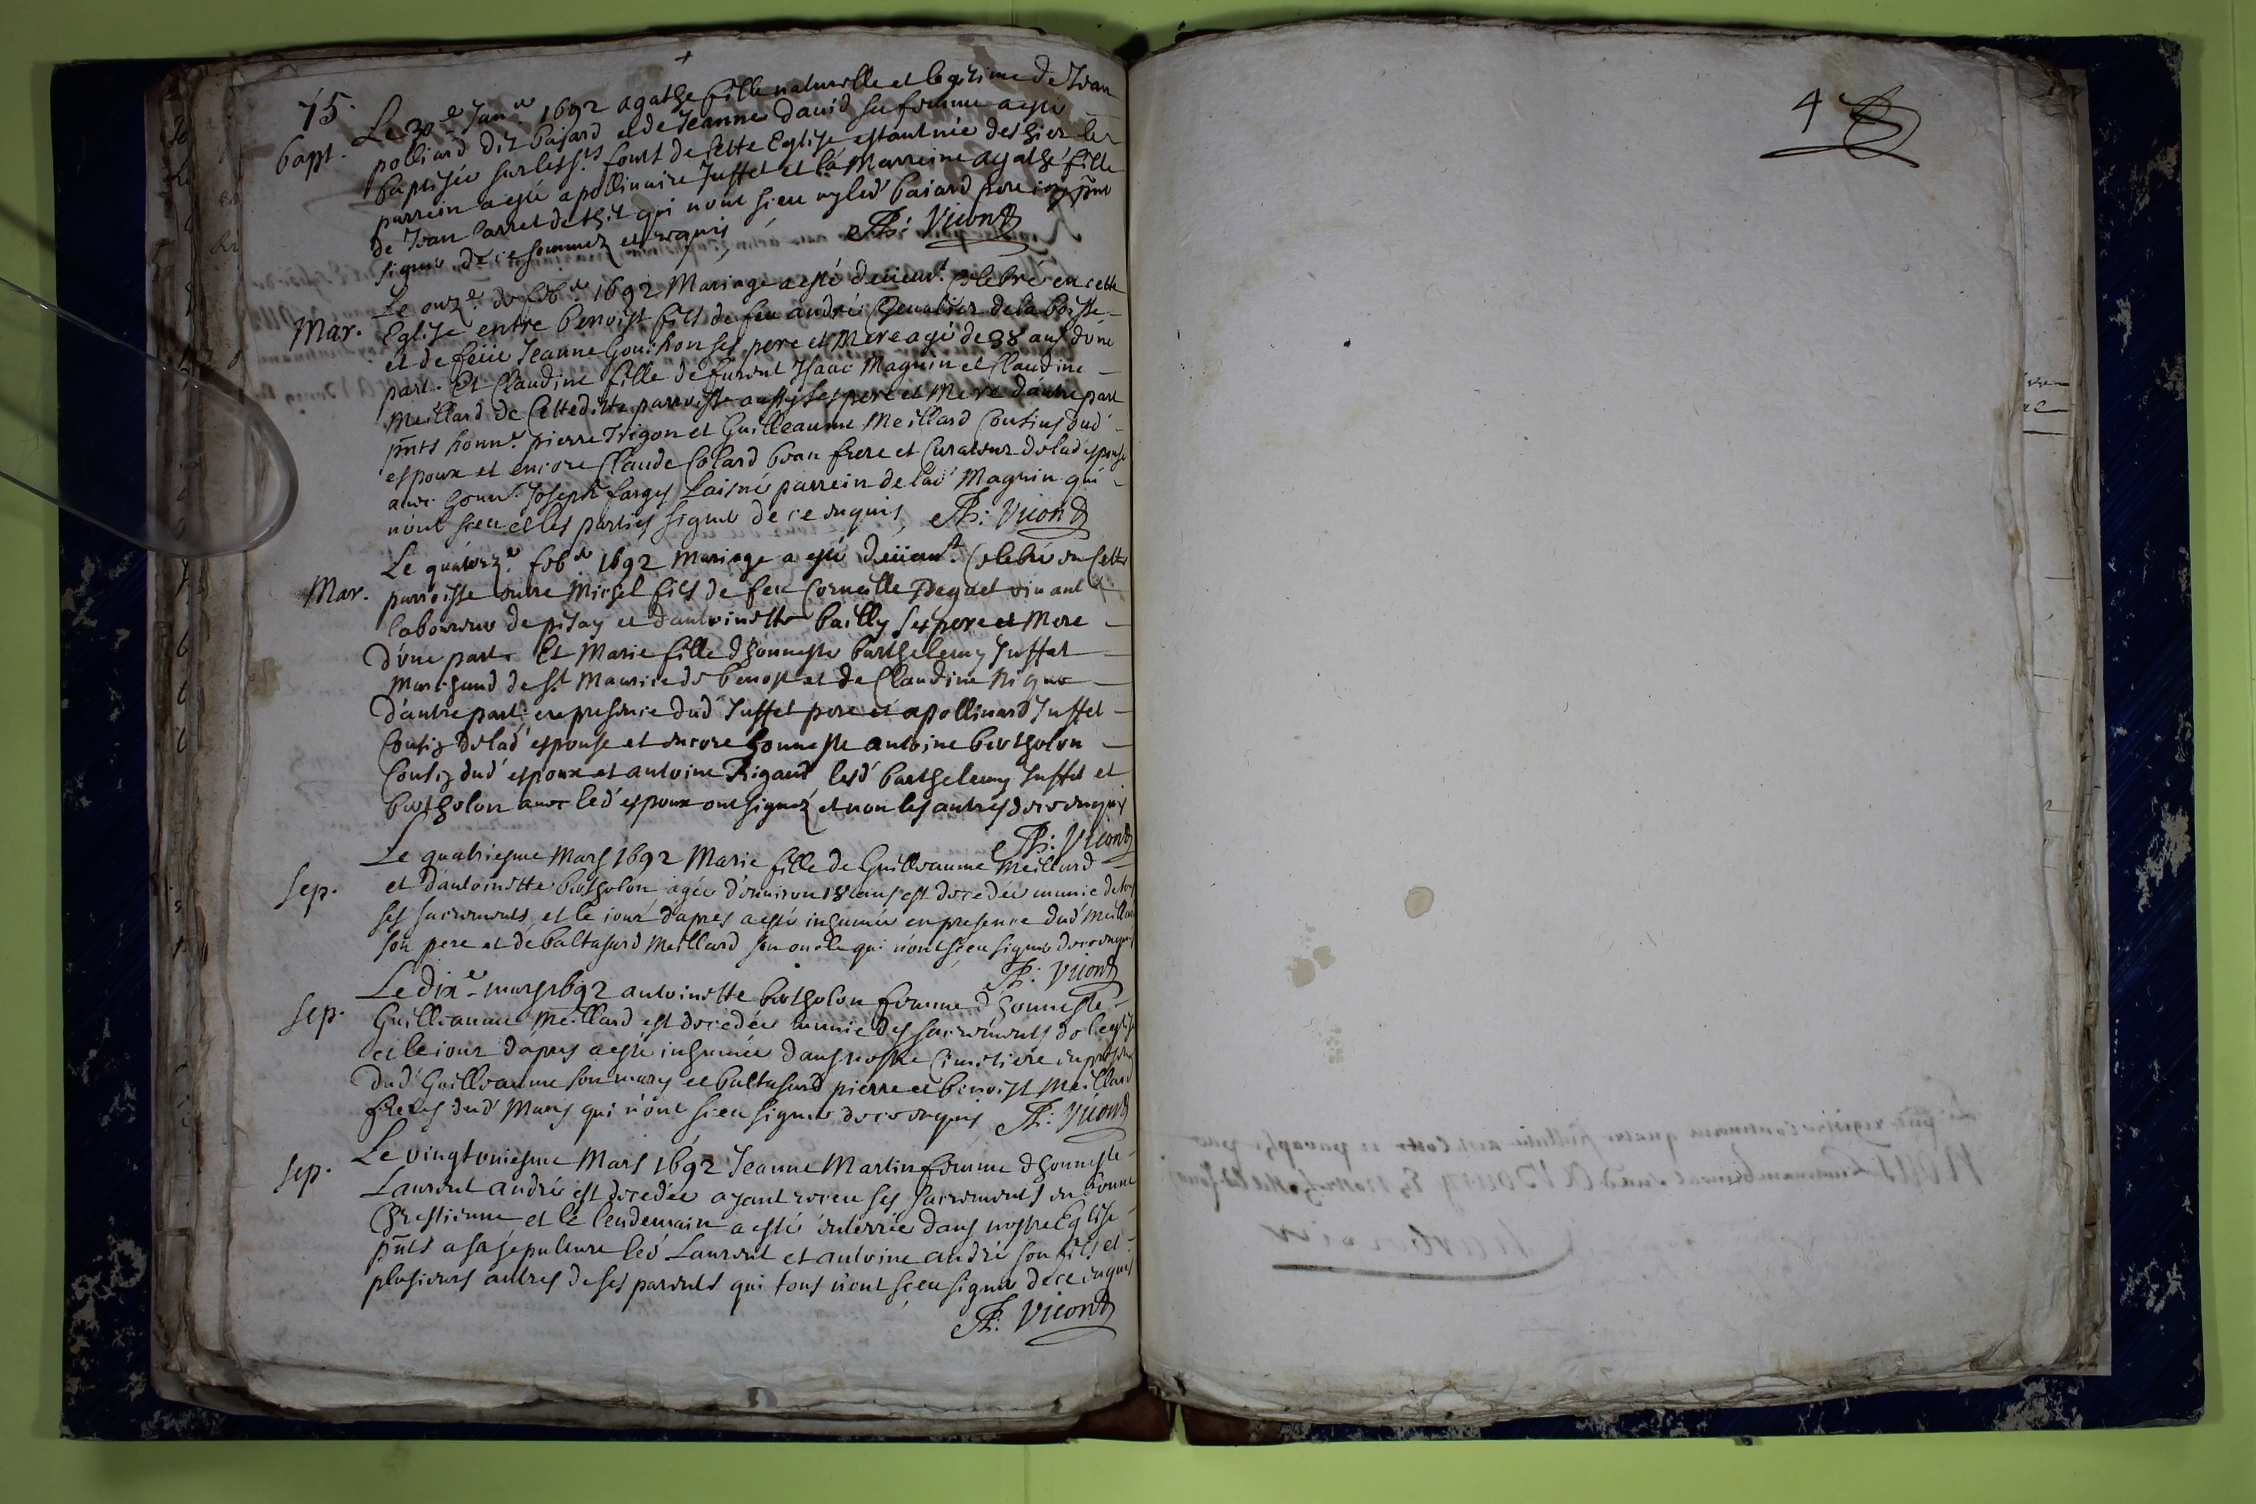 75.
bapt. Le 30e Janer 1692 agathe fille naturelle et legitime de Jean
polliard dit baiard et de Jeanne david sa femme a esté
baptisée sur les sts fonts de cette Eglise estant née deshier le
parrein a esté apollinaire Juffet et la Marreine agathe fille
de Jean Carret de thil qui n'ont sceu ny led' baiard pere icy pñt
signer de ce sommez et requis Th: Vicond
Mar. Le onze de febr 1692 Mariage a esté deüemt celebré en cette
Eglise entre benoist fils de feu andré Chevalier de la boisse
et de feüe Jeanne Gouchon ses pere et Mere agé de 38 ans d'une
part. Et Claudine fille de furent Isaac Magnin et Claudine
Meillard de Cette ditte parroisse aussy ses pere et Mere d'autre part
pñts honne pierre Trigon et Guilleaume Meillard Cousins dud'
espoux et encore Claude Colard beau frere et Curateur de lad' espouse
avec honne Joseph farges Laisné parrein de lad' Magnin qui
n'ont sceu et les parties signer de ce enquis Th: Vicond
Mar. Le quatorze febr 1692 Mariage a esté deüemt Celebré en Cette
parroisse entre Michel fils de feu Corneille vivant
laboureur de pisay et d'antoinette bailly ses pere et Mere
d'une part. Et Marie fille d'honneste barthelemy Juffet
Marchand de St Maurice de benost et de Claudine
d'autre part en presence dud' Juffet pere et apollinard Juffet
Cousin de lad' espouse et encore honneste antoine bertholon
Cousin dud' espoux et antoine Rigaud lesd' barthelemy Juffet et
bertholon avec led' espoux ont signez et non les autres de ce enquis
Th: Vicond
Sep. Le quatriesme Mars 1692 Marie fille de Guilleaume Meillard
et d'antoinette bertholon agée d'environ 18 ans est decedée munie de tous
ses sacrements et le iour d'apres a esté inhumée en presence dud' Meillard
son pere et de baltasard Meillard son oncle qui n'ont sceu signer de ce enquis
Th: Vicond
Sep. Le dixe mars 1692 antoinette bertholon femme d'honneste
Guilleaume Meillard est decedée munie des sacrements de l'eglise
et le iour d'apres a esté inhumée dans nostre Cimetiere en presence
dud' Guilleaume son mary et baltasard pierre et benoist Meillard
freres dud' Mary qui n'ont sceu signer de ce enquis Th: Vicond
Sep. Le vingt uniesme Mars 1692 Jeanne Martin femme d'honneste
Laurent andré est decedée ayant receu ses sacrements en bonne
Chrestienne et le lendemain a esté enterrée dans nostre Eglise
pñts a sa sepulture led' Laurent et antoine andré son fils et
plusieurs autres de ses parents qui tous n'ont sceu signer de ce enquis
Th: Vicond
4